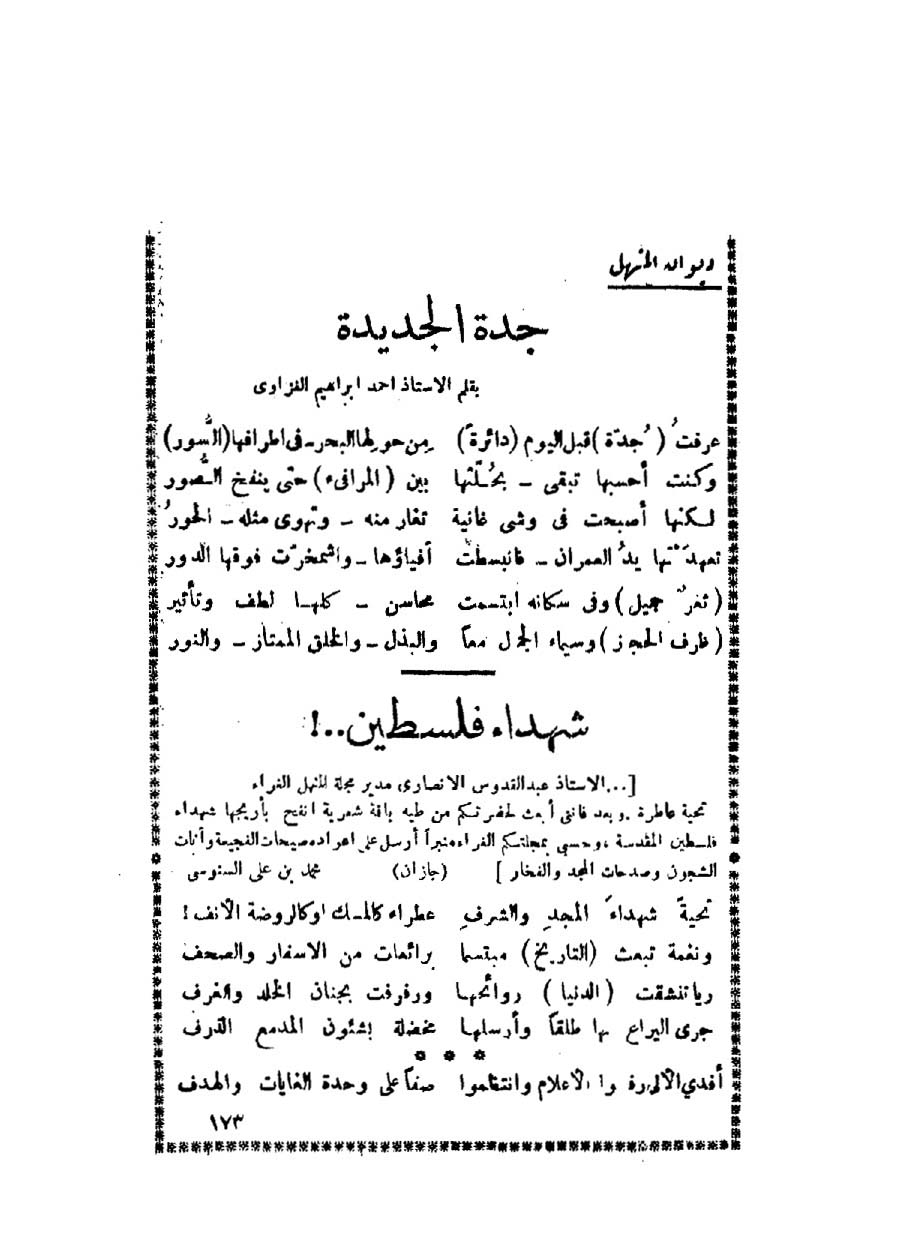 ديوان المنهل
جدة الجديدة
بقلم الاستاذ احمد ابراهيم الغزاوى
عرفتُ ( جُدّة ) قبل اليوم (دائرةً) مِن حولها البحر ـ فى اطرافها (السُّور)
وكنت أحسبها تبقى ـ بحُلّتها بين ( المرافىء ) حتى ينفخ الصُّور
لكنها أصبحت فى وشى غانية تغار منه ـ وتهوى مثله ـ الحورُ
تعهدَتها يدُ العمران ـ فانبسطت أفياؤها ـ واشمخرّت فوقها الدور
( ثغرٌ جميل ) وفى سكانه ابتسمت محاسن ـ كلهـا لطف وتأثير
( ظرف الحجاز ) وسيماء الجمال معاً والبذل ـ والخلق الممتاز ـ والنور
شهداء فلسطين..!
[...الاستاذ عبدالقدوس الانصارى مدير مجلة المنهل الغراء
تحية عاطرة . وبعد فانى أبعث لحضرتكم من طيه باقة شعرية انفح بأريجها شهداء
فلسطين المقدسة ، وحسبى بمجلتكم الغراء منبراً أرسل على اعواده صيحات الفجيعة وأنات
الشجون وصدحات المجد والفخار ] (جازان) محمد بن على السنوسى
تحيةً شهداءَ المجدِ والشرفِ عطراء كالمسك او كالروضة الأنف !
ونغمة تبعث (التاريخ) مبتسما برائعات من الاسفار والصحف
ريا تنشقت ( الدنيا ) روائحها ورفرفت بجنان الخلد والغرف
جرى اليراع بها طلقاً وأرسلها مخضلة بشئون المدمع الذرف
* * *
أفدي الألى رفعوا الاعلام وانتظموا صفاً على وحدة الغايات والهدف
١٧٣